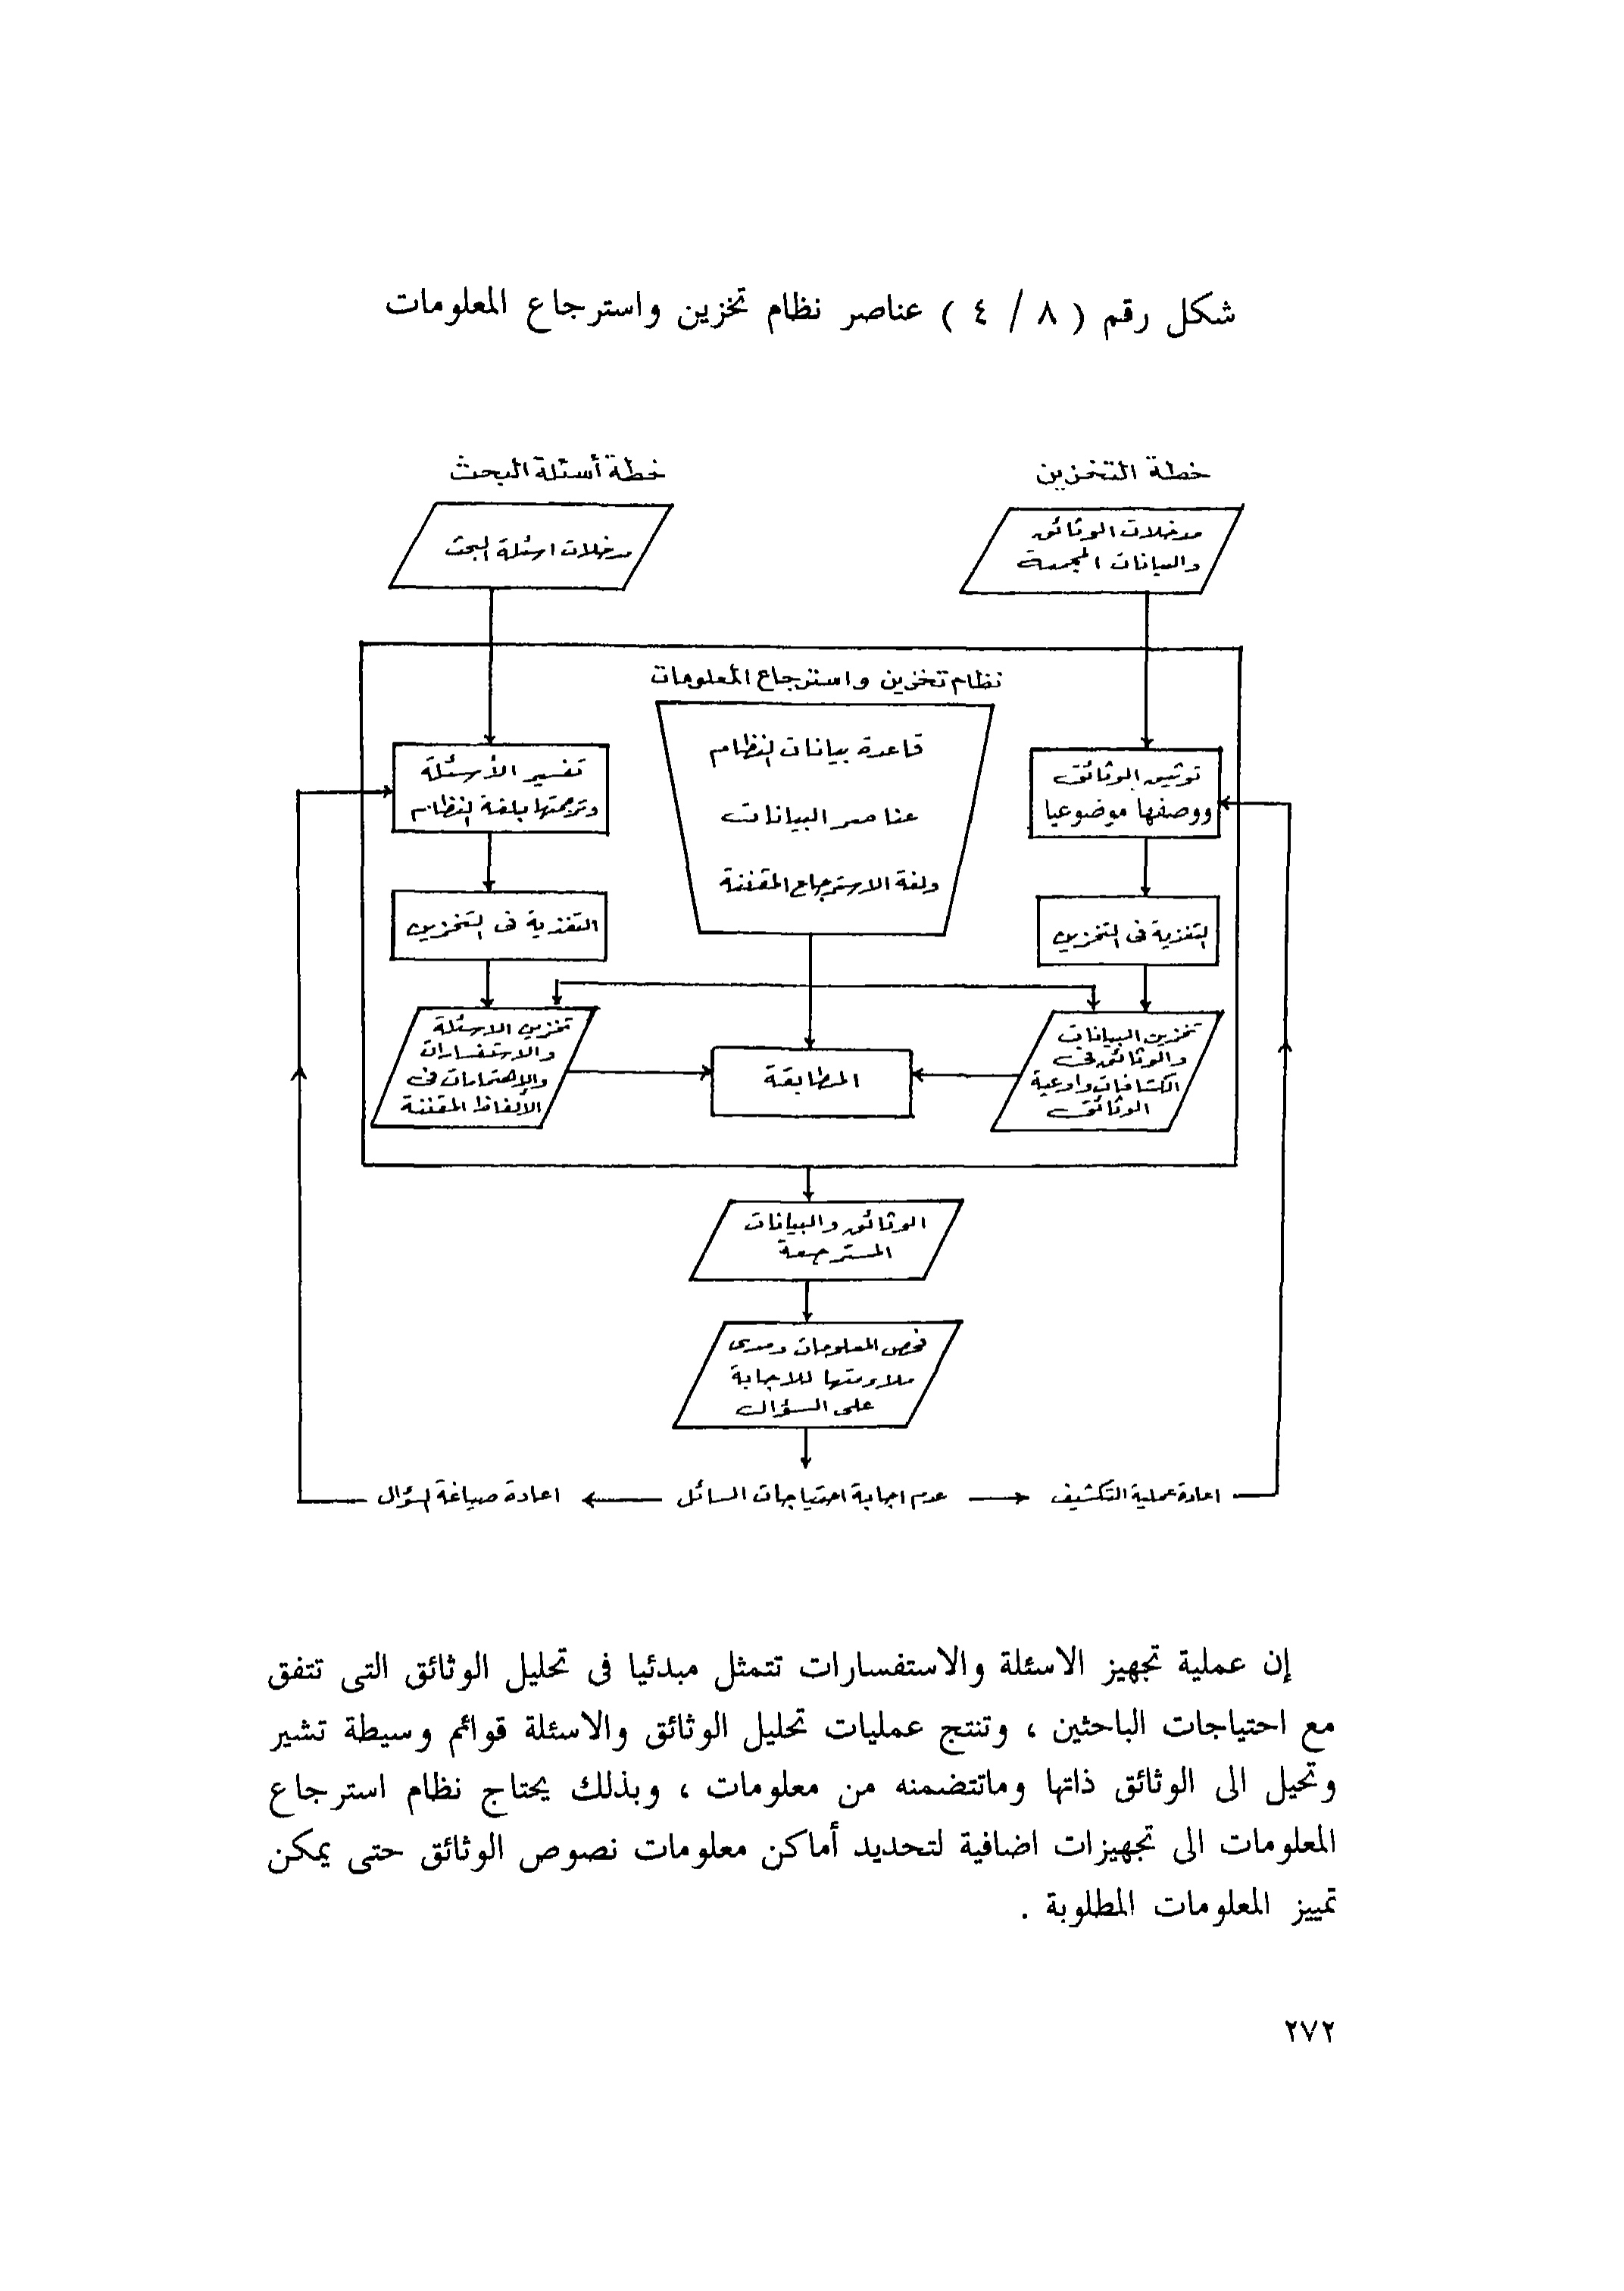 شكل رقم ( ٨ / ٤ ) عناصر نظام تخزين واسترجاع المعلومات
خطة التخزين
خطة أسئلة البحث
مدخلات الوثائق
والبيانات المجمعة
مدخلات اسئلة البحث
نظام تخزين واسترجاع المعلومات
قاعدة بيانات النظام
عناصر البيانات
ولغة الاسترجاع المقننة
توثيق الوثائق
ووصفها موضوعيا
تفسير الأسئلة
وترجمتها بلغة النظام
التغذية فى التخزين
التغذية فى التخزين
تخزين البيانات
والوثائق فى
الكشافات واوعية
الوثائق
المطابقة
تخزين الاسئلة
والاستفسارات
والاهتمامات فى
الألفاظ المقننة
الوثائق والبيانات
المسترجعة
فحص المعلومات ومدى
ملاءمتها للاجابة
على السؤال
اعادة عملية التكشيف
عدم اجابة احتياجات السائل
اعادة صياغة السؤال
إن عملية تجهيز الاسئلة والاستفسارات تتمثل مبدئيا فى تحليل الوثائق التى تتفق
مع احتياجات الباحثين ، وتنتج عمليات تحليل الوثائق والاسئلة قوائم وسيطة تشير
وتحيل الى الوثائق ذاتها وماتتضمنه من معلومات ، وبذلك يحتاج نظام استرجاع
المعلومات الى تجهيزات اضافية لتحديد أماكن معلومات نصوص الوثائق حتى يمكن
تمييز المعلومات المطلوبة .
٢٧٢